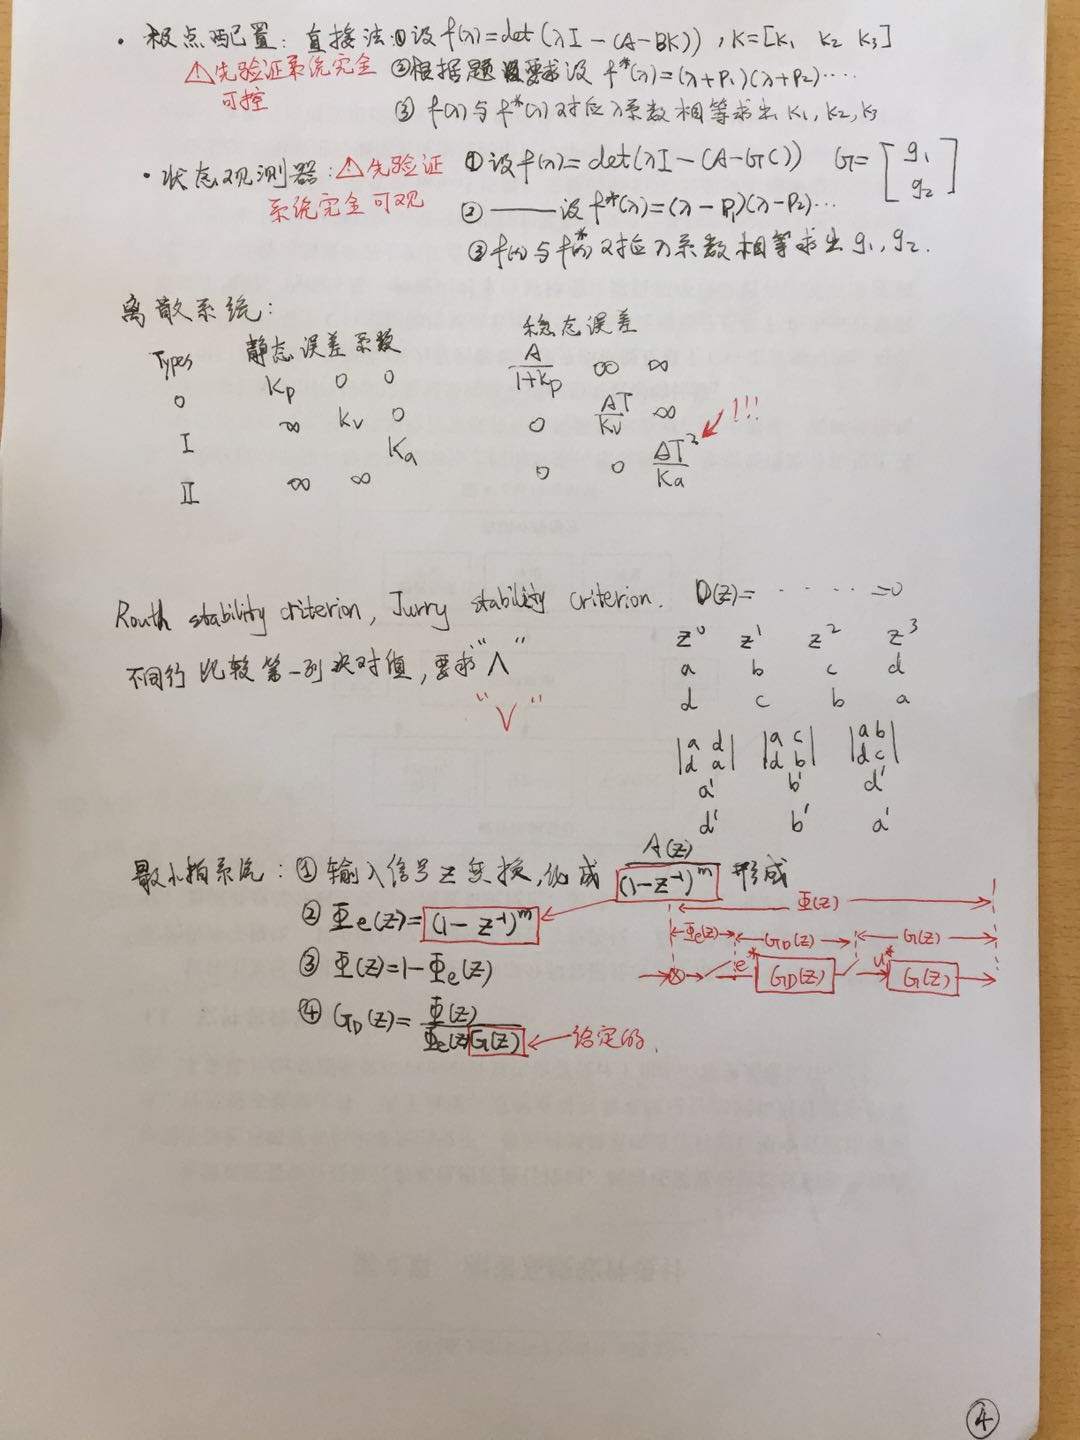 · 极点配置: 直接法: ①设 f(λ)=det(λI-(A-BK)), K=[K₁ K₂ K₃]
⚠先验证系统完全可控
②根据题设要求设 f*(λ)=(λ+P₁)(λ+P₂)····
③ f(λ)与f*(λ)对应λ系数相等求出 K₁, K₂, K₃
· 状态观测器: ⚠先验证系统完全可观
①设f(λ)=det(λI-(A-GC)) G=[g₁ g₂]
② —— 设 f*(λ)=(λ-P₁)(λ-P₂)···
③ f(λ)与f*(λ)对应λ系数相等求出 g₁, g₂.
离散系统:
Types 静态误差系数 稳态误差
0 Kp 0 0 A/(1+Kp) ∞ ∞
I ∞ Kv 0 0 AT/Kv ∞
II ∞ ∞ Ka 0 0 AT²/Ka
!!!
Routh stability criterion, Jurry stability criterion. D(z)=- · · · · =0
不同行比较第一列绝对值, 要求"∧"
"∨"
z⁰ z¹ z² z³
a b c d
d c b a
|a d| |a c| |a b|
|d a| |d b| |d c|
a' b' d'
d' b' a'
最小拍系统: ①输入信号z变换, 化成 A(z)/(1-z⁻¹)ᵐ 形成
② Φe(z)=(1-z⁻¹)ᵐ
③ Φ(z)=1-Φe(z)
④ GD(z)=Φ(z)/Φe(z)G(z) ← 给定的.
Φ(z)
Φe(z) GD(z) G(z)
e* GD(z) u* G(z)
④